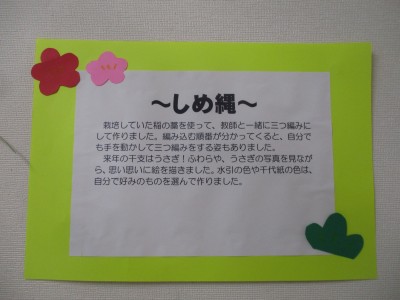 ～しめ縄～
栽培していた稲の藁を使って、教師と一緒に三つ編みに
して作りました。編み込む順番が分かってくると、自分で
も手を動かして三つ編みをする姿もありました。
来年の干支はうさぎ！ふわらや、うさぎの写真を見なが
ら、思い思いに絵を描きました。水引の色や千代紙の色は、
自分で好みのものを選んで作りました。